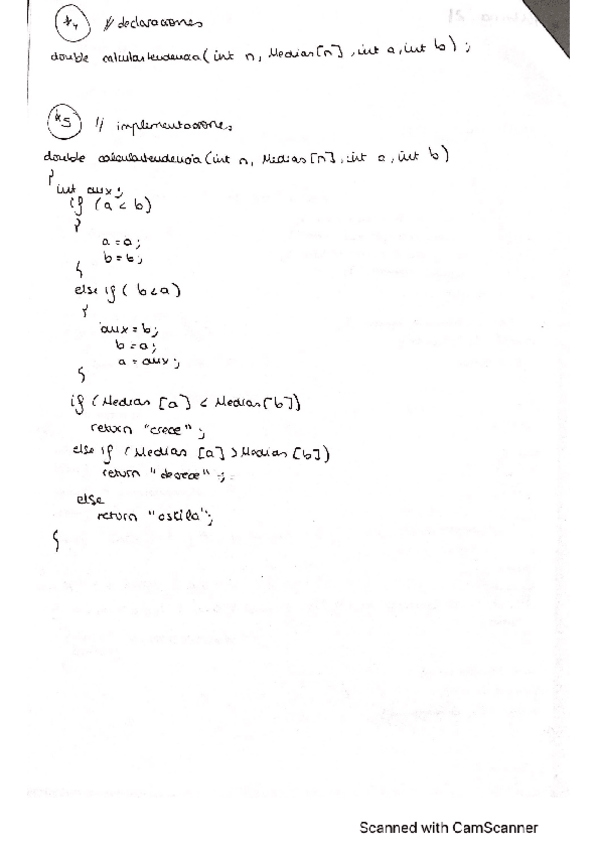 *4 // declaraciones
double calculartendencia (int n, Medias[n], int a, int b);
*5 // implementaciones
double calculartendencia (int n, Medias[n], int a, int b)
{
int aux;
if (a < b)
{
a = a;
b = b;
}
else if (b < a)
{
aux = b;
b = a;
a = aux;
}
if (Medias [a] < Medias[b])
return "crece";
else if (Medias [a] > Medias [b])
return "decrece";
else
return "oscila";
}
Scanned with CamScanner